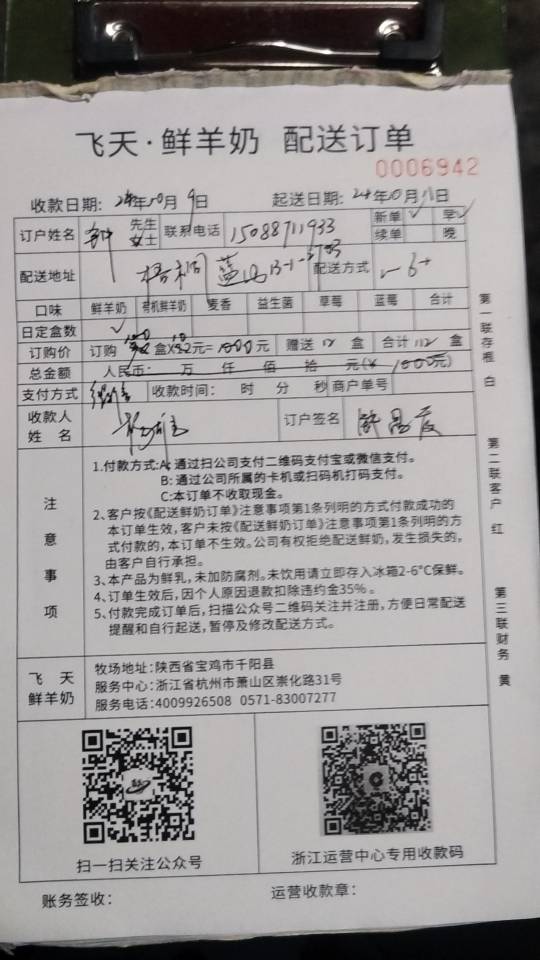 飞天·鲜羊奶 配送订单
0006942
收款日期: 24年10月9日 起送日期: 24年10月11日
订户姓名 先生 女士 联系电话 15088711933 新单 ✓ 早 ✓
续单 晚
配送地址 梧桐蓝 配送方式
口味 鲜羊奶 有机鲜羊奶 麦香 益生菌 草莓 蓝莓 合计
日定盒数 ✓
订购价 订购 盒X 元=1000元 赠送12盒 合计112盒
总金额 人民币: 万 仟 佰 拾 元(¥ 1000元)
支付方式 收款时间: 时 分 秒 商户单号
收款人姓名 订户签名
注意事项
1.付款方式:A: 通过扫公司支付二维码支付宝或微信支付。
B: 通过公司所属的卡机或扫码机打码支付。
C:本订单不收取现金。
2、客户按《配送鲜奶订单》注意事项第1条列明的方式付款成功的
本订单生效，客户未按《配送鲜奶订单》注意事项第1条列明的方
式付款的，本订单不生效。公司有权拒绝配送鲜奶，发生损失的，
由客户自行承担。
3、本产品为鲜乳，未加防腐剂。未饮用请立即存入冰箱2-6°C保鲜。
4、订单生效后，因个人原因退款扣除违约金35%。
5、付款完成订单后，扫描公众号二维码关注并注册，方便日常配送
提醒和自行起送，暂停及修改配送方式。
飞天鲜羊奶
牧场地址:陕西省宝鸡市千阳县
服务中心:浙江省杭州市萧山区崇化路31号
服务电话:4009926508 0571-83007277
扫一扫关注公众号 浙江运营中心专用收款码
账务签收: 运营收款章:
第一联存根 白
第二联客户 红
第三联财务 黄